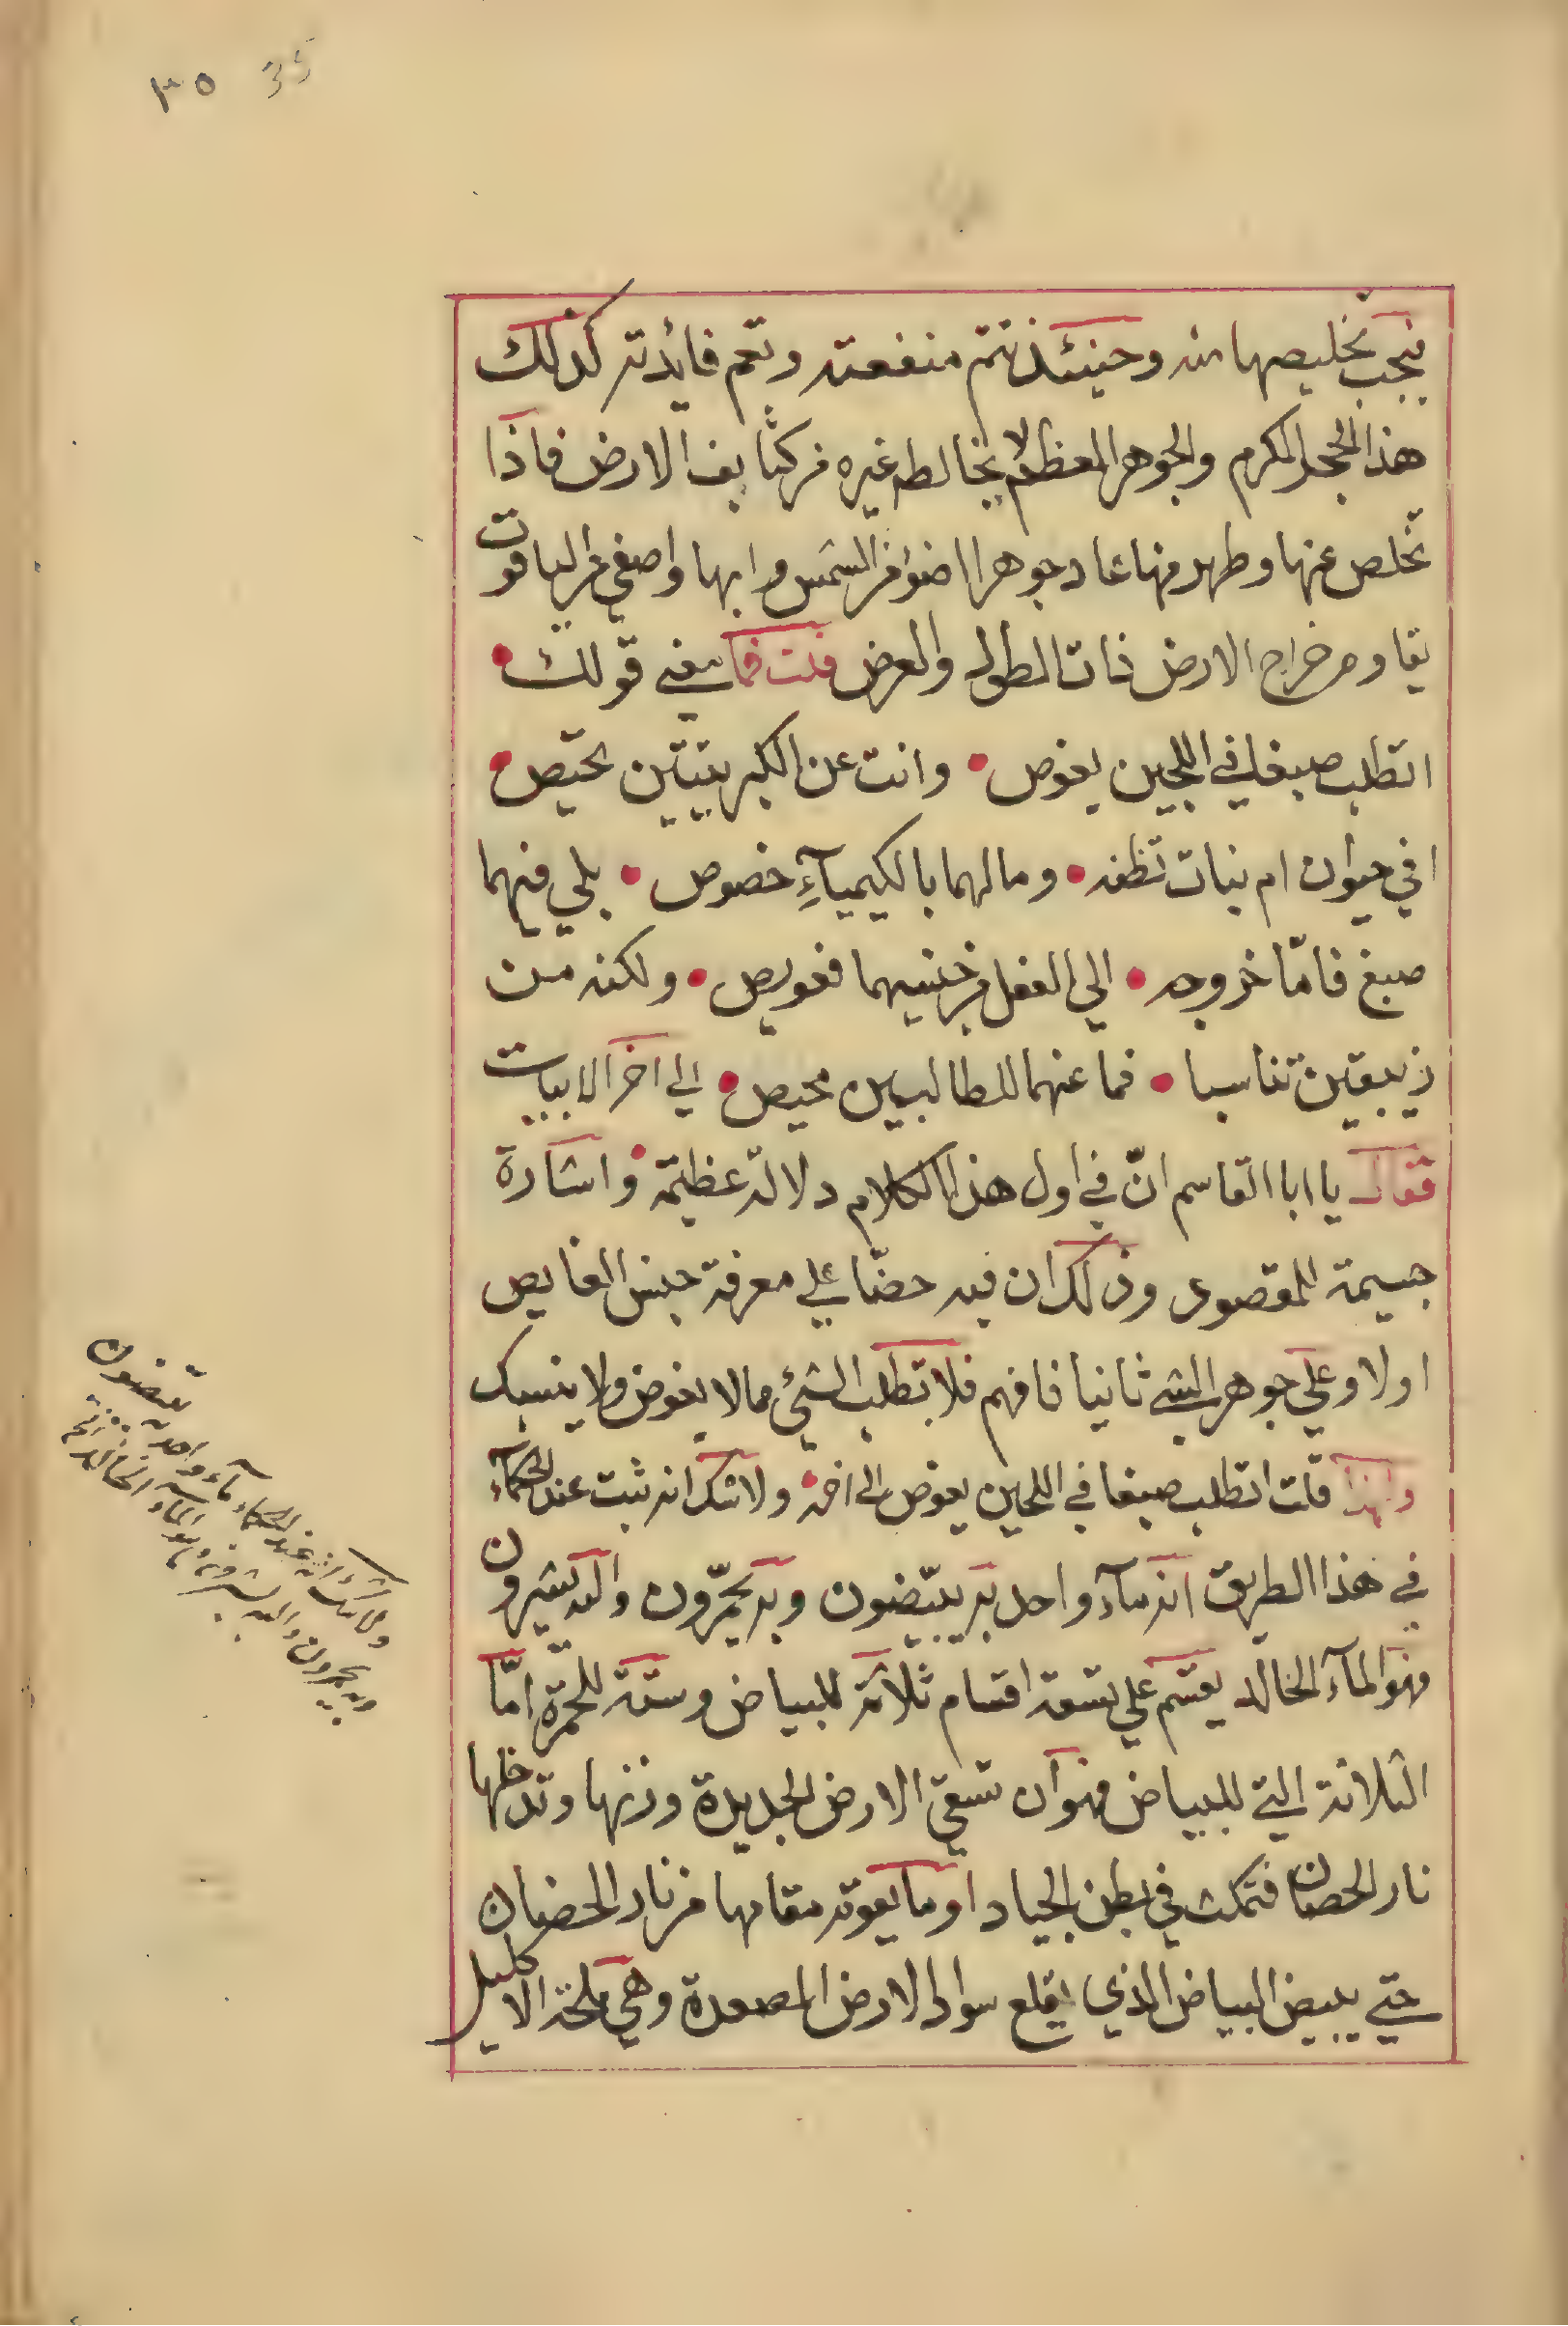 ٣٥ 35
فيجب تخليصها منه وحينئذ تتم منفعته وتعم فائدته كذلك
هذا الحجر المكرم والجوهر المعظم لا يخالطه غيره من كثايف الارض فاذا
تخلص عنها وطهر منها عاد جوهرا اضوا من الشمس وابها واصفى من الياقوت
يقاوم خراج الارض ذات الطول والعرض قلت فما معنى قولك
اتطلب صبغا في اللجين يغوص وانت عن الكبريتتين تحيص
افي حيوان ام نبات تظنه وما لهما بالكيمياء خصوص بلى فيهما
صبغ فامّا خروجه الى الفعل من جنسيهما فعويص ولكنه من
زيبقين تناسبا فما عنهما للطالبين محيص الى اخر الابيات
فقال يا ابا القاسم انّ في اول هذا الكلام دلالة عظيمة واشارة
جسيمة للمقصود وذلك ان فيه حضّا على معرفة جنس الغايص
اولا وعلى جوهر الشي ثانيا فافهم فلا تطلب الشيء مما لا يغوص ولا ينسبك
ولهذا قلت اتطلب صبغا في اللجين يغوص الى اخره ولا شك انه ثبت عند الحكماء
في هذا الطريق انه ماء واحد به يبيّضون وبه يحمّرون واليه يشيرون
فهو الماء الخالد يقسم على تسعة اقسام ثلاثة للبياض وستة للحمرة امّا
الثلاثة التي للبياض فهو ان تسقي الارض الجديدة وزنها وتدخلها
نار الحضان فتمكث في بطن الجياد او ما يقوم مقامها من نار الحضان
حتى يبيض البياض الذي يقلع سواد الارض المصعدة وهي ملحة الاكليل
ولا شك انه عند الحكماء ماء واحد به يبيضون
وبه يحمرون واليه يشيرون فهو الماء الخالد